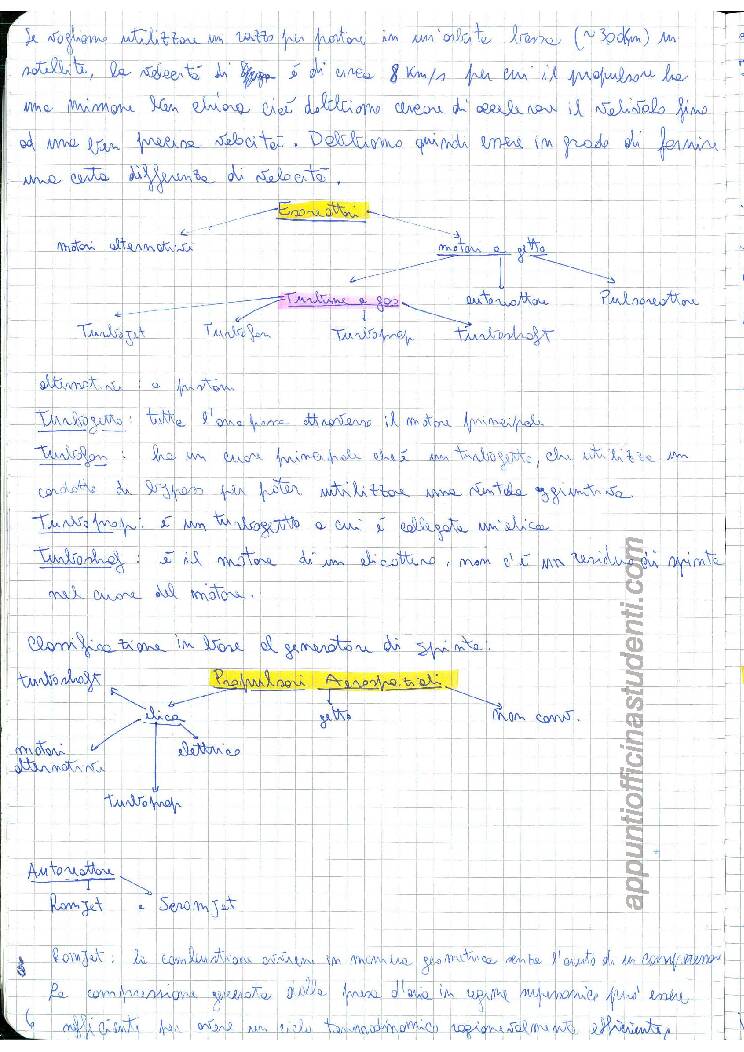 Se vogliamo utilizzare un razzo per portare in un'orbita bassa (~300Km) un
satellite, la velocità di è di circa 8 Km/s per cui il propulsore ha
una missione ben chiara cioè dobbiamo cercare di accelerare il velivolo fino
ad una ben precisa velocità. Dobbiamo quindi essere in grado di fornire
una certa differenza di velocità.
Esoreattori
motori alternativi motori a getto
Turbine a gas autoreattore Pulsoreattore
Turbojet Turbofan Turboprop Turboshaft
alternativi : a pistoni
Turbogetto : tutta l'aria passa attraverso il motore principale
Turbofan : ha un cuore principale che è un turbogetto, che utilizza un
condotto di bypass per poter utilizzare una ventola aggiuntiva
Turboprop : è un turbogetto a cui è collegata un'elica
Turboshaf : è il motore di un elicottero, non c'è un residuo di spinta
nel cuore del motore.
Classificazione in base al generatore di spinta:
Propulsori Aerospaziali
turboshaft
elica getto non conv.
motori alternativi elettrico
turboprop
Autoreattore
RamJet e ScramJet
RamJet : la combustione avviene in maniera geometrica senza l'aiuto di un compressore
La compressione generata dalla presa d'aria in regime supersonico può essere
sufficiente per avere un ciclo termodinamico ragionevolmente efficiente,
appuntiofficinastudenti.com